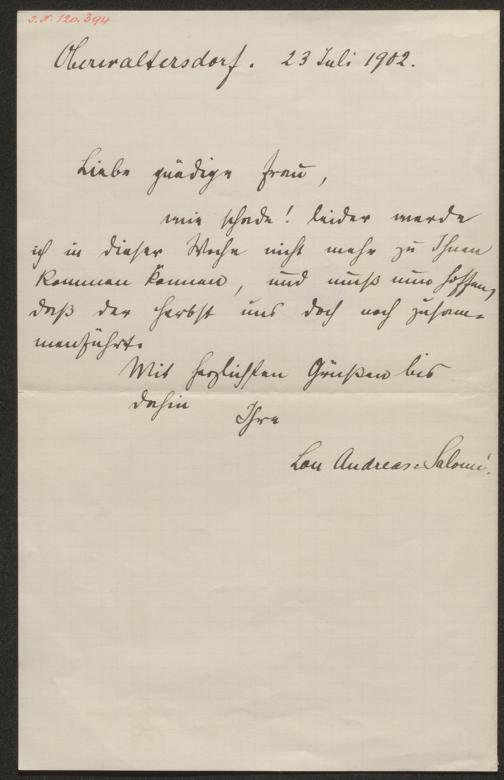 I.N. 120.394
Oberwaltersdorf. 23 Juli 1902.
Liebe gnädige Frau,
wie schade! leider werde
ich in dieser Woche nicht mehr zu Ihnen
kommen können, und muß nun hoffen,
daß der Herbst uns doch noch zusam-
menführt.
Mit herzlichsten Grüßen bis
dahin
Ihre
Lou Andreas-Salomé.